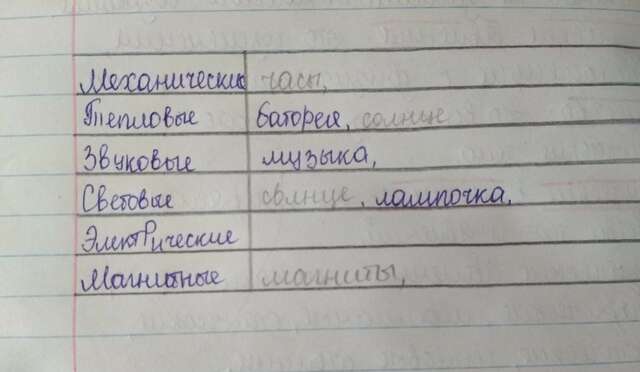 Механические часы,
Тепловые батарея, солнце
Звуковые музыка,
Световые солнце, лампочка.
Электрические
Магнитные магниты,